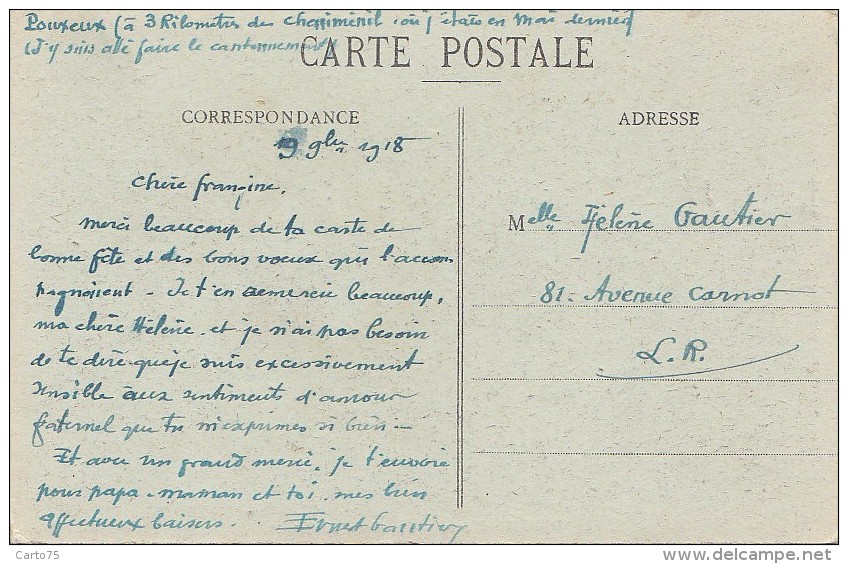 Pouxeux (à 3 Kilomètres de Cheniménil où j'étais en Mai dernier)
(J'y suis allé faire le cantonnement)
CARTE POSTALE
CORRESPONDANCE
9 9bre 1918
Chère frangine,
Merci beaucoup de ta carte de
bonne fête et des bons voeux qui l'accom
pagnaient - Je t'en remercie beaucoup,
ma chère Hélène, et je n'ai pas besoin
de te dire que je suis excessivement
sensible aux sentiments d'amour
fraternel que tu m'exprimes si bien -
Et avec un grand merci, je t'envoie
pour papa - maman et toi, mes bien
affectueux baisers. Ernest Gautier
ADRESSE
Melle Hélène Gautier
81 - Avenue Carnot
L. R.
Carto75
www.delcampe.net